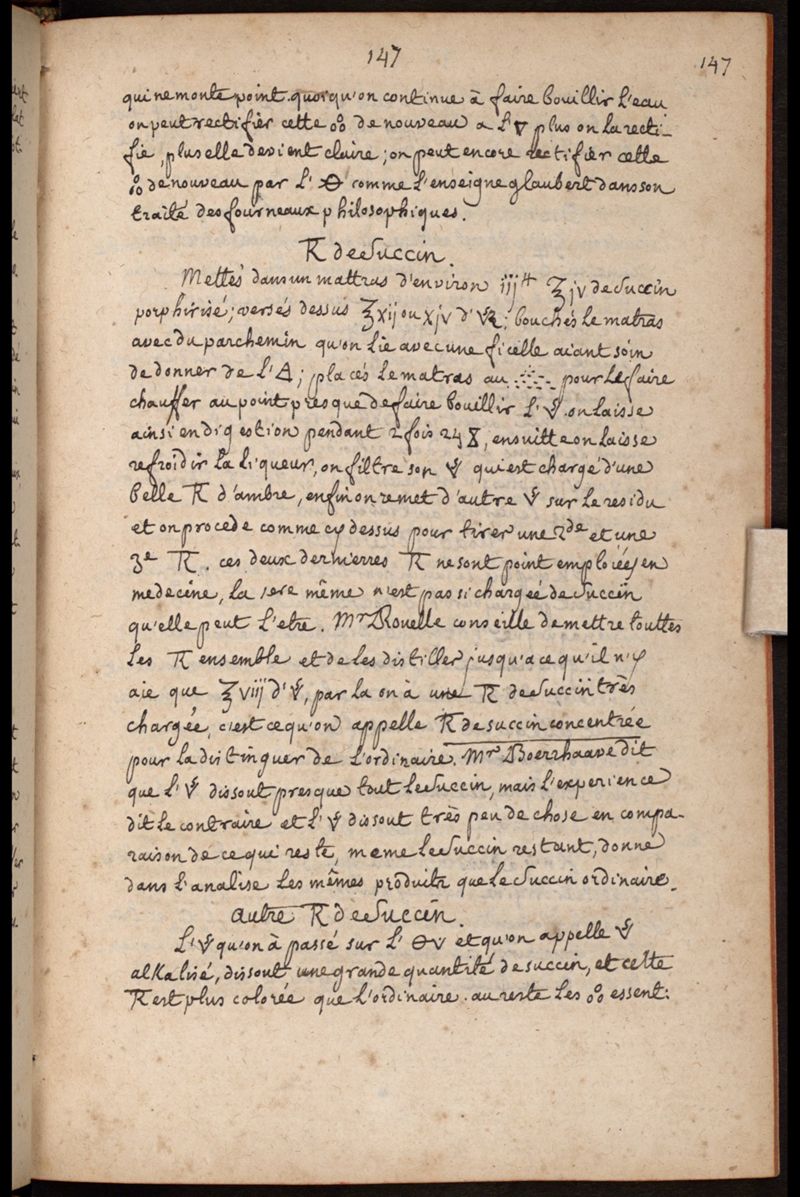 147
147
qui ne monte point quoiqu'on continue à faire bouillir l'eau
on peut rectifier cette o°o de nouveau a l'🜄 plus on la recti-
fie, plus elle devient claire; on peut encore rectifier cette
o°o de nouveau par l' 🜔 comme l'enseigne glaubert dans son
traité des fourneaux philosophiques.
R de Succin.
Mettés dans un mattras d'environ iiij ℔ ℥jv de Succin
porphirisé; versés dessus ℥xij ou xjv d' V; bouchés le matras
avec du parchemin qu'on lie avec une ficelle aiant soin
de donner de l'🜁; placés le matras au ·:·:· pour le faire
chauffer au point presque de faire bouillir l'V on laisse
ainsi en digestion pendant 2 fois 24 ⧖, ensuitte on laisse
refroidir la liqueur, on filtre son V qui est chargé d'une
belle R d'ambre, enfin on remet d'autre V sur le residu
et on procede comme cy dessus pour tirer une 2de et une
3e R. ces deux dernierres R ne sont point emploiées en
medecine, la 1ere même n'est pas si chargée de Succin
qu'elle peut l'etre. Mr Rouelle conseille de mettre touttes
les R ensemble et de les distiller jusqu'a ce qu'il n'y
aie que ℥viij d'V, par la on à une R de Succin très
chargée, c'est ce qu'on appelle R de succin concentrée
pour la distinguer de l'ordinaire. Mr Boerrhaave dit
que l'V dissout presque tout le Succin, mais l'experience
dit le contraire et l'V dissout très peu de chose en compa-
raison de ce qui reste, meme le Succin restant, donne
dans l'analise les mêmes produits que le Succin ordinaire.
autre R de Succin.
L'V qu'on à passé sur l' 🜔V et qu'on appelle V
alkalisé, dissout une grande quantité de succin, et cette
R est plus colorée que l'ordinaire. au reste les o°o essent: